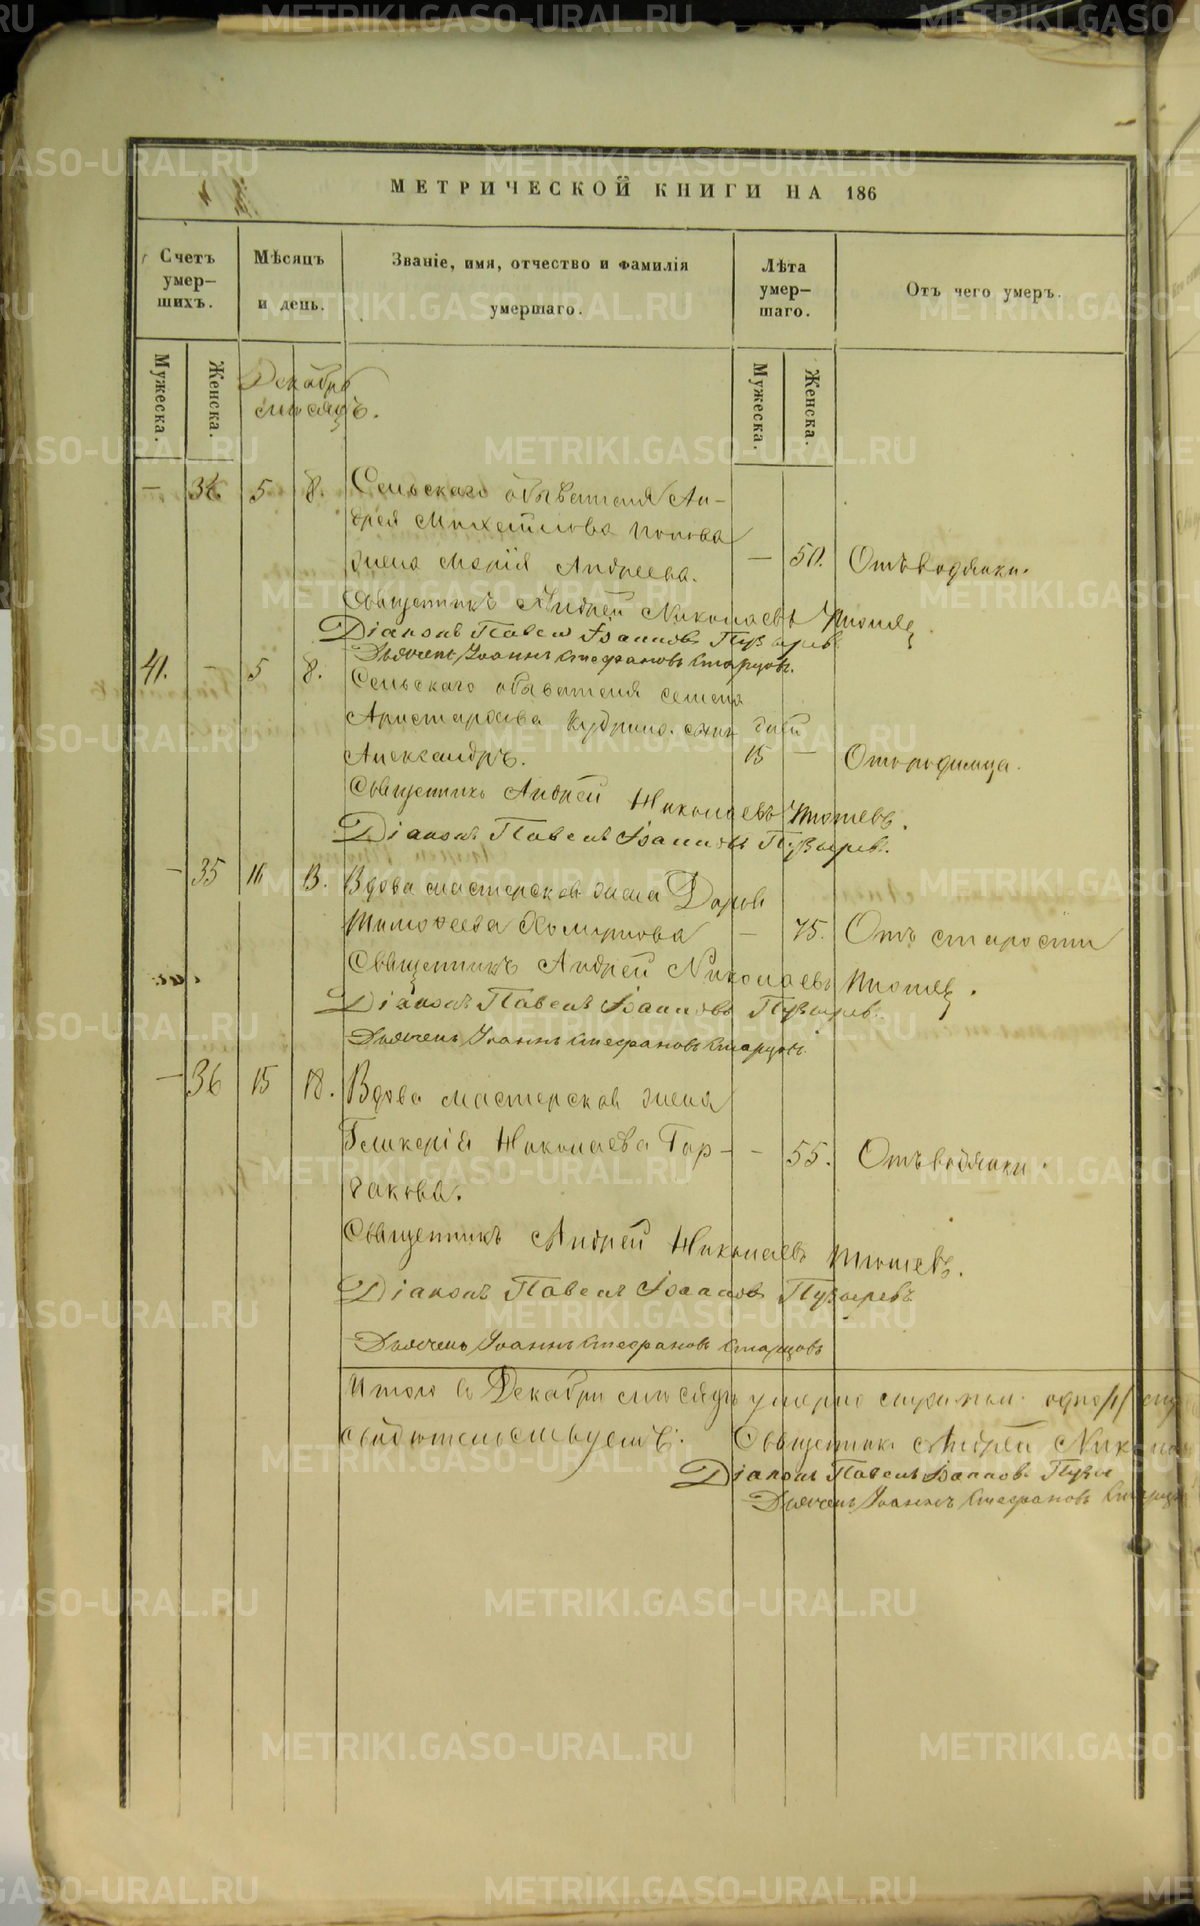 МЕТРИЧЕСКОЙ КНИГИ НА 186
Счетъ умер-шихъ.
Мѣсяцъ и день.
Званіе, имя, отчество и фамилія умершаго.
Лѣта умер-шаго.
Отъ чего умеръ.
Мужеска.
Женска.
Мужеска.
Женска.
Декабрь
мѣсяцъ.
— 34 5 8. Сельскаго обывателя Ан-
дрея Михейлова Попова
жена Марія Андреева. — 50. Отъ водянки.
Священникъ Андрей Николаевъ
Діаконъ Павелъ Іоанновъ Пузыревъ
Дьячекъ Іоаннъ Стефановъ Старцовъ.
41. — 5 8. Сельскаго обывателя Семена
Аристархова Кудрина сынъ дней
Александръ. 15 — Отъ родимца.
Священникъ Андрей Николаевъ
Діаконъ Павелъ Іоанновъ Пузыревъ.
— 35 11 13. Вдова мастерская жена Дарья
Тимофеева — 75. Отъ старости
Священникъ Андрей Николаевъ
Діаконъ Павелъ Іоанновъ Пузыревъ.
Дьячекъ Іоаннъ Стефановъ Старцовъ
— 36 15 18. Вдова мастерская жена
Гликерія Николаева Гор- — 55. Отъ водянки.
бакова.
Священникъ Андрей Николаевъ
Діаконъ Павелъ Іоанновъ Пузыревъ
Дьячекъ Іоаннъ Стефановъ Старцовъ
Итого въ Декабрѣ мѣсяцѣ умерло
свидѣтельствуемъ: Священникъ Андрей
Діаконъ Павелъ Іоанновъ
Дьячекъ Іоаннъ Стефановъ
METRIKI.GASO-URAL.RU